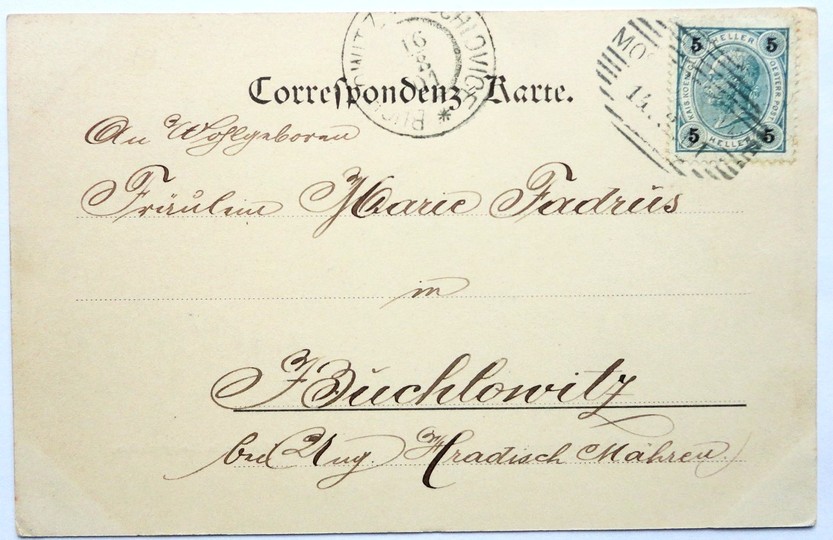 BUCHLOWITZ BUCHLOVICE
16
8
01
*
MO
14.
5 HELLER 5
KAIS. KOENIGL. OESTERR. POST
5 HELLER 5
Correſpondenz-Karte.
An Wohlgeboren
Fräulein Marie Fadrus
in
Buchlowitz
bei Ung. Hradisch Mähren